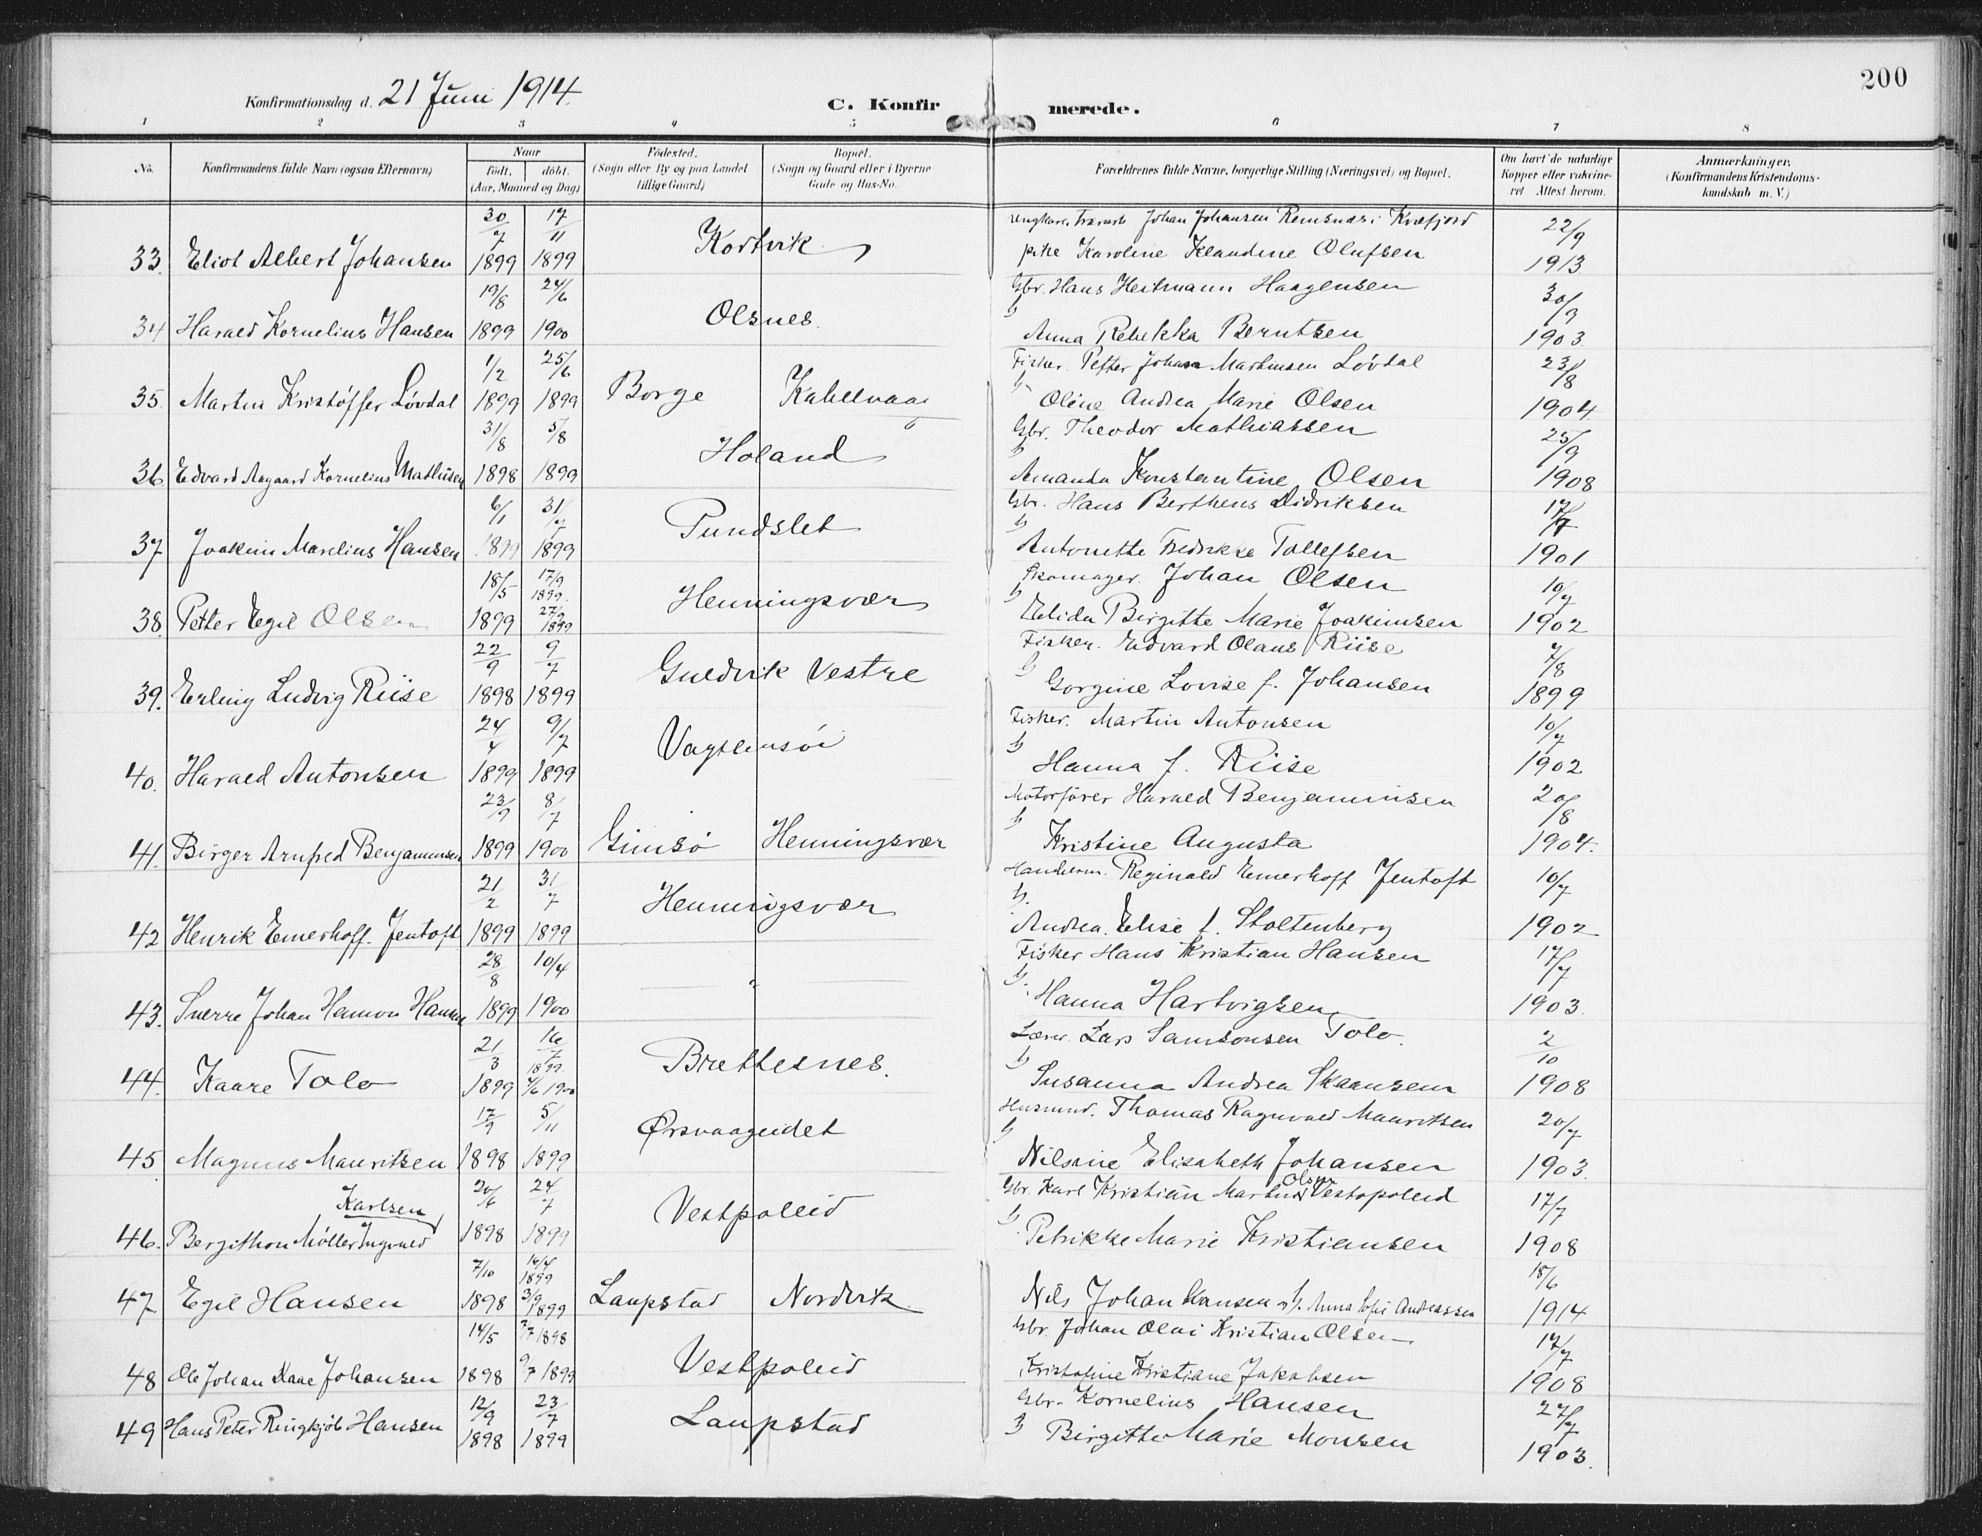 200
Konfirmationsdag d. 21 Juni 1914.
C. Konfirmerede.
1 2 3 4 5 6 7 8
No. Konfirmandens fulde Navn (ogsaa Efternavn) Naar født. døbt. (Aar, Maaned og Dag) Fødested. (Sogn eller By og paa Landet tillige Gaard) Bopæl. (Sogn og Gaard eller i Byerne Gade og Hus-No. Forældrenes fulde Navne, borgerlige Stilling (Næringsvei) og Bopæl. Om havt de naturlige Kopper eller vakcineret Attest herom. Anmærkninger. (Konfirmandens Kristendomskundskab m. V.)
30/7 17/11 Kortvik Johan Johansen Remsnes i Kvæfjord 22/9
33. Eliot Albert Johansen 1899 1899 pike Karoline Klaudine Olufsen 1913
19/8 24/6 Olsnes. Gbr. Hans Heitmann Haagensen 30/9
34 Harald Kornelius Hansen 1899 1900 Anna Rebekka Berntsen 1903
1/2 25/6 Fisker. Petter Johan Martinsen Løvdal 23/8
35. Martin Kristoffer Løvdal 1899 1899 Borge Kabelvaag Oline Andrea Marie Olsen 1904
31/8 5/8 Holand Gbr. Theodor Mathiassen 25/9
36 Edvard Aagaard Kornelius Mathisen 1898 1899 Amanda Konstantine Olsen 1908
6/1 31/7 Pundslet Gbr. Hans Bertheus Didriksen 17/7
37 Joakim Marelius Hansen 1899 1899 Antonette Fredrikke Tollefsen 1901
18/5 17/9 1899. Henningsvær Skomager. Johan Olsen 10/7
38. Petter Egil Olsen 1899 27/9 1899 Elida Birgitte Marie Joakimsen 1902
22/9 9/7 Guldvik Vestre Fisker. Edvard Olaus Riise 7/8
39. Erling Ludvig Riise 1898 1899 Gorgine Lovise f. Johansen 1899
24/4 9/7 Fisker. Martin Antonsen 10/7
40. Harald Antonsen 1899 1899 Hanna f. Riise 1902
23/9 8/7 Motorfører Harald Benjaminsen 20/8
41. Birger Arnfred Benjaminsen 1899 1900 Gimsø Henningsvær Kristine Augusta 1904.
21/2 31/7 Henningsvær Handelsm. Reginald Emerhoff Jentoft 10/7
42 Henrik Emerhoff. Jentoft 1899 1899 Andrea. Elise f. Stoltenberg 1902
28/8 10/4 Fisker Hans Kristian Hansen 17/7
43. Sverre Johan Hansen 1899 1900 Hanna Hartvigsen 1903
21/3 16/7 1899. Brettesnes. Lærer. Lars Samsonsen Tolo. 2/10
44. Kaare Tolo 1899 1900 Susanna Andrea Skaansen 1908
17/9 5/11 Ørsvaageidet Husmand. Thomas Ragnvald Mauritsen 20/7
45. Magnus Mauritsen 1898 1899 Nilsine Elisabeth Johansen 1903
Karlsen 20/6 24/7 Vestpolleid Gbr. Karl Kristian Martin Olsen Vestpolleid 17/7
46. Bergithon Møller Ingvald 1898 1899 Petrikke Marie Kristiansen 1908
7/10 16/4 1899 18/6
47 Egil Hansen 1898 3/9 1899 Laupstad Nordvik Nils Johan Hansen Anna Sofie Andreassen 1914
14/5 7/7 1898 Vestpolleid Gbr. Johan Olai Kristian Olsen 17/7
48 Ole Johan Kaae Johansen 1898 9/7 1899 Kristofine Kristiane Jakobsen 1908
12/9 23/7 Laupstad Gbr. Kornelius Hansen 27/7
49 Hans Peter Ringkjøb Hansen 1898 1899 Birgitte Marie Monsen 1903.